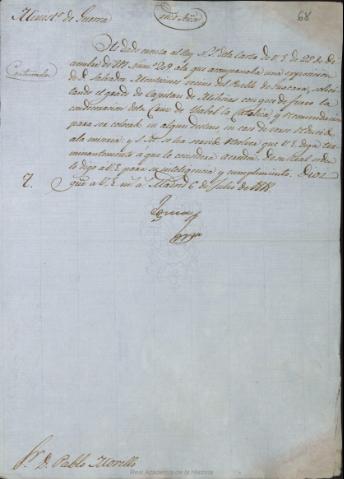 Minist.º de Guerra
68
He dado cuenta al Rey N. S. de la Carta de V. E. de 25 de
num.º 209 a la que acompañaba una exposicion
de D. Salvador vecino del Pueblo de Guacara, solici
tando el grado de Capitan de Milicias con uso de fuero la
condecoracion de la Cruz de Ysabel la Catolica, y
para ser colocado en algun destino, en caso de
y S. M. se ha servido resolver que V. E. diga ter
minantemente a que lo considera acreedor. De Real orden
lo digo a V. E. para su inteligencia y cumplimiento. Dios
gue a V. E. m. a. Madrid 6 de Julio de 1818.
S.r D. Pablo Morillo
Real Academia de la Historia